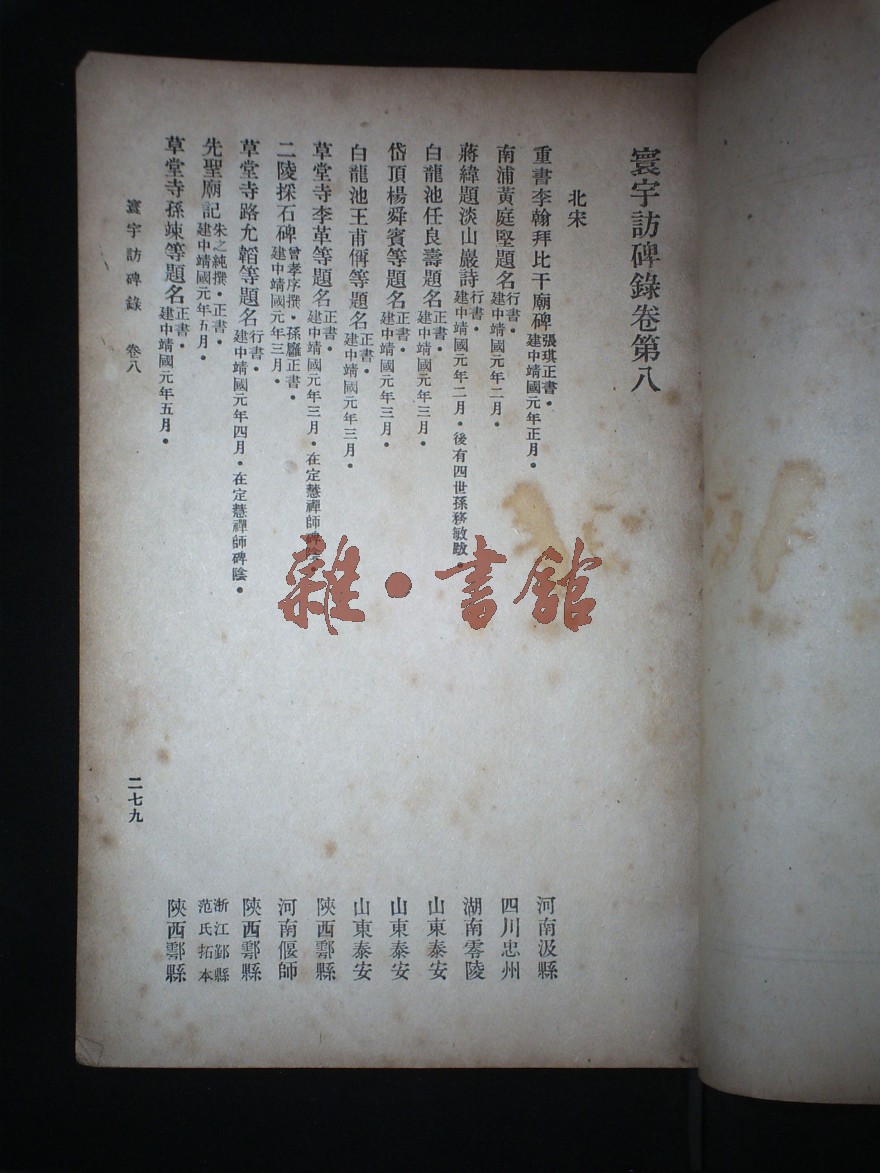 寰宇訪碑錄卷第八
北宋
重書李翰拜比干廟碑 張琪正書・建中靖國元年正月・ 河南汲縣
南浦黃庭堅題名 行書・建中靖國元年二月・ 四川忠州
蔣緯題淡山巖詩 行書・建中靖國元年二月・後有四世孫務敏跋・ 湖南零陵
白龍池任良壽題名 正書・建中靖國元年三月・ 山東泰安
岱頂楊舜賓等題名 正書・建中靖國元年三月・ 山東泰安
白龍池王甫偁等題名 正書・建中靖國元年三月・ 山東泰安
草堂寺李革等題名 正書・建中靖國元年三月・在定慧禪師碑陰・ 陝西鄠縣
二陵採石碑 曾孝序撰・孫廱正書・建中靖國元年三月・ 河南偃師
草堂寺路允韜等題名 行書・建中靖國元年四月・在定慧禪師碑陰・ 陝西鄠縣
先聖廟記 朱之純撰・正書・建中靖國元年五月・ 浙江鄞縣范氏拓本
草堂寺孫竦等題名 正書・建中靖國元年五月・ 陝西鄠縣
寰宇訪碑錄 卷八 二七九
雜・書館